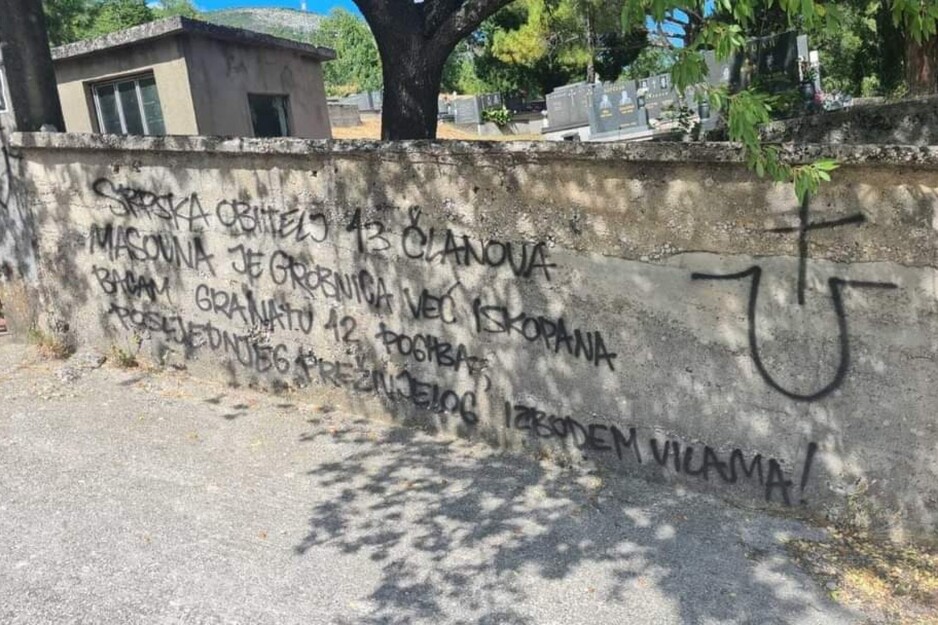 SRPSKA OBITELJ 13 ČLANOVA
MASOVNA JE GROBNICA VEĆ ISKOPANA
BACAM GRANATU 12 POGIBA,
POSLJEDNJEG PREŽIVJELOG IZBODEM VILAMA!
U